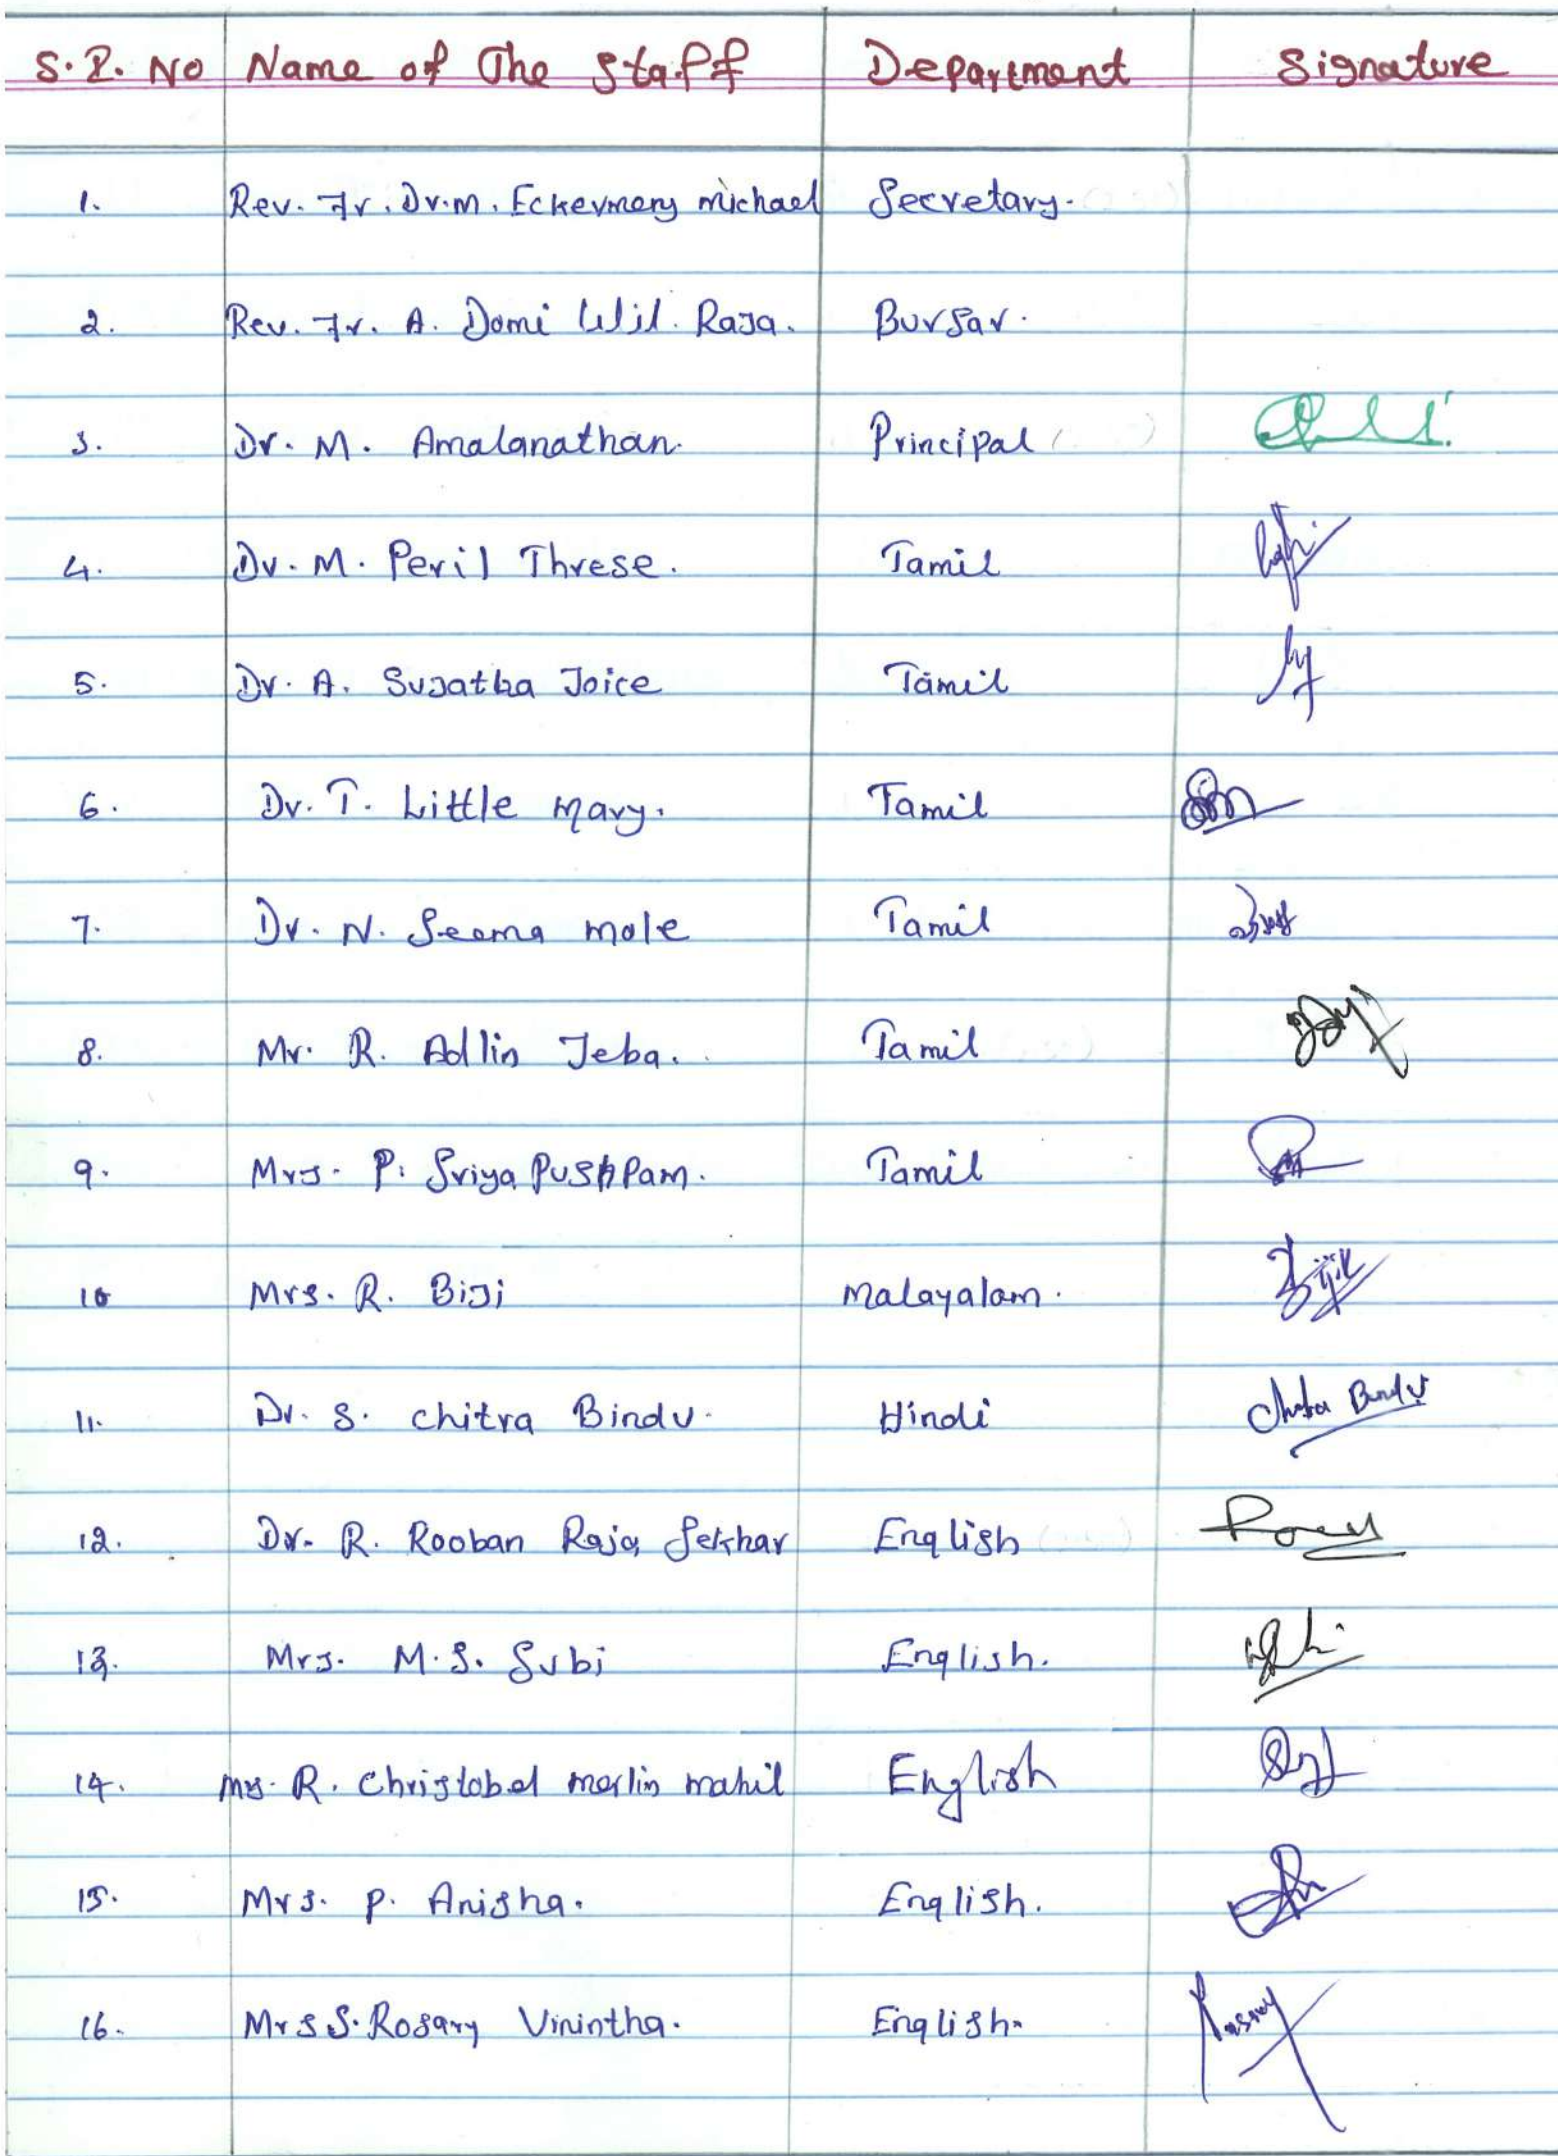 S.R. No Name of The Staff Department Signature
1. Rev. Fr. Dr. M. Eckermery Michael Secretary.
2. Rev. Fr. A. Domi Wil. Raja. Bursar.
3. Dr. M. Amalanathan. Principal
4. Dr. M. Peril Threse. Tamil
5. Dr. A. Sujatha Joice Tamil
6. Dr. T. Little Mary. Tamil
7. Dr. N. Seema mole Tamil
8. Mr. R. Adlin Jeba. Tamil
9. Mrs. P. Sriya Pushpam. Tamil
10 Mrs. R. Biji Malayalam.
11. Dr. S. Chitra Bindu. Hindi Chitra Bindu
12. Dr. R. Rooban Raja Sekhar English
13. Mrs. M.S. Subi English.
14. Mrs. R. Christobel merlin mahil English
15. Mrs. P. Anisha. English.
16. Mrs S. Rosary Vinintha. English. Rosary